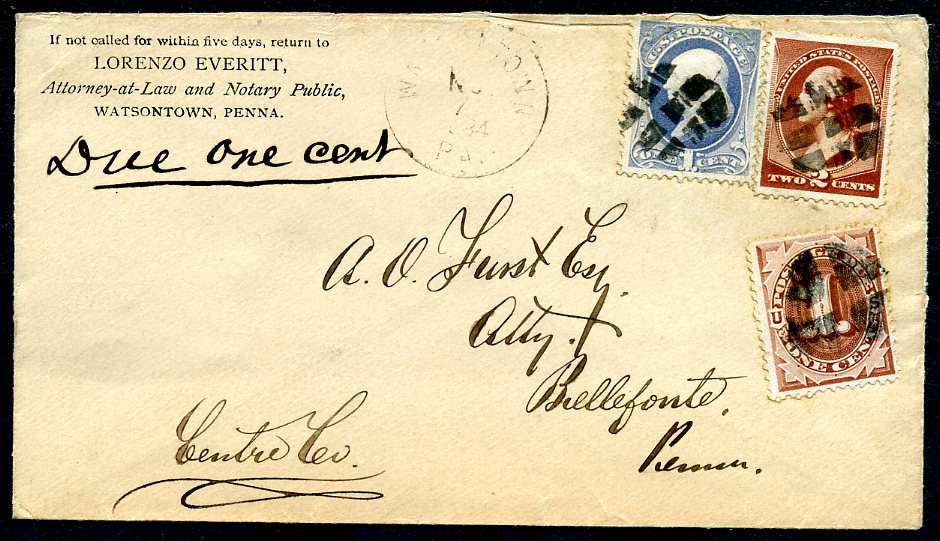 If not called for within five days, return to
LORENZO EVERITT,
Attorney-at-Law and Notary Public,
WATSONTOWN, PENNA.
Due one cent
PA.
U.S. POSTAGE
ONE 1 CENT
UNITED STATES POSTAGE
TWO 2 CENTS
POSTAGE DUE
U S
1
ONE CENT
A. O. Furst Esq.
Atty.
Bellefonte,
Penna.
Centre Co.